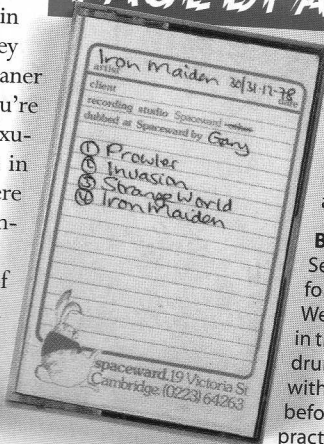 in
ey
aner
u're
xu-
in
ere
n-
f
Iron Maiden 30/31·12·78
artist
date
client
recording studio Spaceward
dubbed at Spaceward by Gary
① Prowler
② Invasion
③ Strange World
④ Iron Maiden
spaceward. 19 Victoria St
Cambridge. (0223) 64263
a
B
Se
fo
We
in t
drur
with
befo
pract